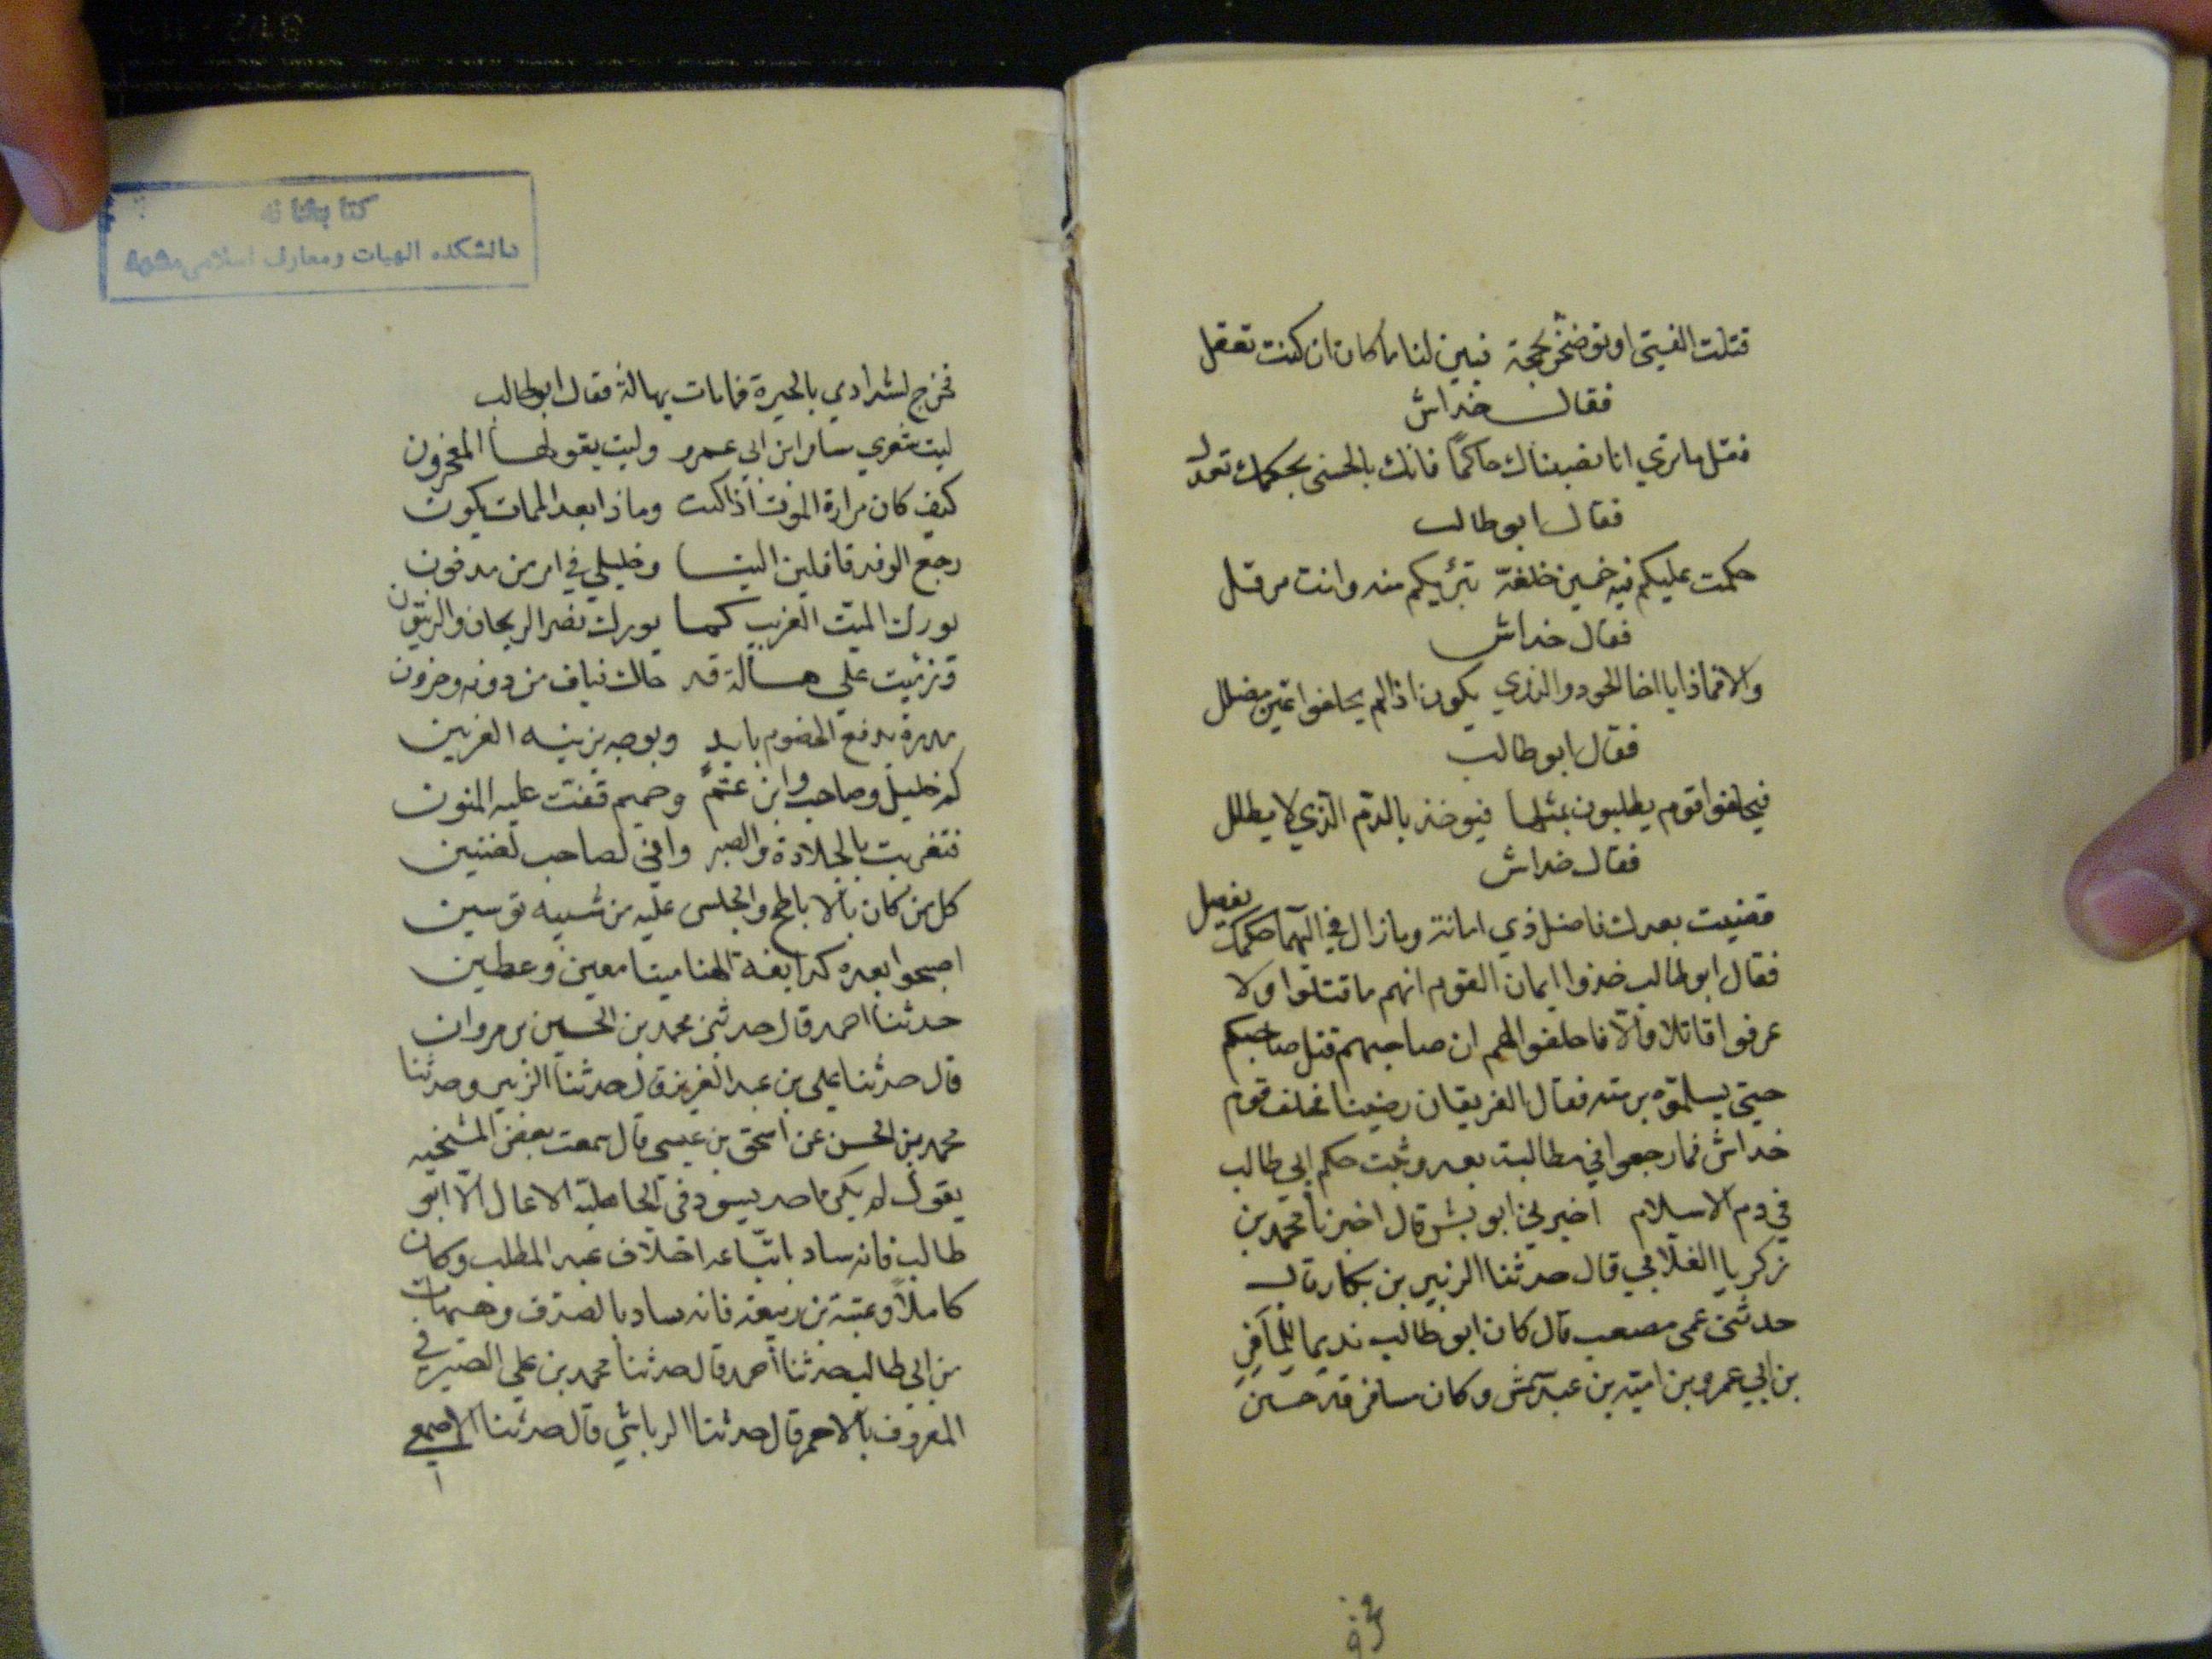 قتلت الفتى او توضحن بحجة فبين لنا ما كان ان كنت تعقل
فقال خداش
فقل ما ترى انا نصبناك حاكمًا فانك بالحسنى بحكمك تعدل
فقال ابو طالب
حكمت عليكم فيه خمسين خلفة تبرئكم منه وانت من قتل
فقال خداش
والا فماذا يا اخا الجود والندي يكون اذا لم يحلفوا غير مضلل
فقال ابو طالب
فيحلفوا قوم يطلبون بمثلها فيوخذ بالدم الذي لا يطلل
فقال خداش
قضيت بعدك فاضل ذي امانة وما زال في حكمك يفصل
فقال ابو طالب خذوا ايمان القوم انهم ما قتلوا ولا
عرفوا قاتلا والّا فاحلفوا لهم ان صاحبهم قتل صاحبكم
حتي يسلموه برمته فقال الفريقان رضينا فحلف قوم
خداش فما رجعوا في مطالبة بعد وثبت حكم ابي طالب
في دم الاسلام اخبرني ابو بشر قال اخبرنا محمد بن
زكريا الغلابي قال حدثنا الزبير بن بكار قال
حدثني عمي مصعب قال كان ابو طالب نديما لمسافر
بن ابي عمرو بن امية بن عبد شمس وكان مسافر قد حسن
كتابخانه
دانشكده الهيات ومعارف اسلامي مشهد
فخرج بالحيرة فمات بهالة فقال ابو طالب
ليت شعري مسافر ابن ابي عمرو وليت يقولها المحزون
كيف كان مرارة الموت اذا كنت وماذا بعد الممات يكون
رجع الوفد قافلين الينا وخليلي في مرمس مدفون
بورك الميت الغريب كما بورك نضر الريحان والزيتون
قد رزئت علي هبالة قد حال فياف من دونه وحزون
مدرة يدفع الخصوم بايد وبوجه يزينه العرنين
كم خليل وصاحب وابن عم وحميم قضت عليه المنون
فتعزيت بالجلادة والصبر واني لصاحب لضنين
كل من كان بالاباطح والجلس عليه من شيبه
اصبحوا بعده
حدثنا احمد قال حدثني محمد بن الحسين بن مروان
قال حدثنا علي بن عبد العزيز قال حدثنا الزبير وحدثنا
محمد بن الحسن عن اسحق بن عيسى قال سمعت بعض المشيخه
يقول لم يكن احد يسود في الجاهلية الا بمال الّا ابو
طالب فانه ساد باتباعه اخلاف عبد المطلب وكان
كاملاً وعتبة بن ربيعة فانه ساد بالصدف
بن ابي طالب حدثنا احمد قال حدثنا محمد بن علي الصيرفي
المعروف بالاحمر قال حدثنا الرياشي قال حدثنا الاصمعي